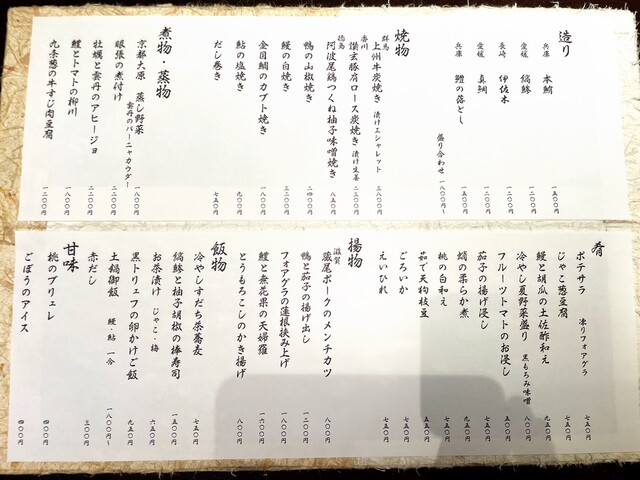 造り
兵庫 本鮪 一五〇〇円
愛媛 縞鯵 一二〇〇円
長崎 伊佐木 一二〇〇円
愛媛 真鯛 一二〇〇円
兵庫 鱧の落とし 一五〇〇円
盛り合わせ 一八〇〇円〜
焼物
群馬 上州牛炭焼き 漬けエシャレット 三八〇〇円
香川 讃玄豚肩ロース炭焼き 漬け生姜 二三〇〇円
徳島 阿波尾鶏つくね柚子味噌焼き 八五〇円
鴨の山椒焼き 二四〇〇円
鰻の白焼き 三二〇〇円
金目鯛のカブト焼き 一八〇〇円
鮎の塩焼き 九〇〇円
だし巻き 七五〇円
煮物・蒸物
京都大原 蒸し野菜 雲丹のバーニャカウダー 一八〇〇円
眼張の煮付け 二二〇〇円
牡蠣と雲丹のアヒージョ 二二〇〇円
鱧とトマトの柳川 一八〇〇円
九条葱の牛すじ肉豆腐 一二〇〇円
肴
ポテサラ 凍りフォアグラ 七五〇円
じゃこ葱豆腐 七五〇円
鰻と胡瓜の土佐酢和え 九五〇円
冷やし夏野菜盛り 黒もろみ味噌 一二〇〇円
フルーツトマトのお浸し 七五〇円
茄子の揚げ浸し 七五〇円
蛸の柔らか煮 九五〇円
桃の白和え 七五〇円
茹で天狗枝豆 五五〇円
ごろいか 七五〇円
えいひれ 七五〇円
揚物
滋賀 蔵尾ポークのメンチカツ 八〇〇円
鴨と茄子の揚げ出し 一二〇〇円
フォアグラの蓮根挟み上げ 一八〇〇円
鱧と無花果の天婦羅 一六〇〇円
とうもろこしのかき揚げ 八〇〇円
飯物
冷やしすだち茶蕎麦 七五〇円
縞鯵と柚子胡椒の棒寿司 一五〇〇円
お茶漬け じゃこ・梅 六五〇円
黒トリュフの卵かけご飯 九五〇円
土鍋御飯 鰻・鮎 一合 一八〇〇円〜
赤だし 三〇〇円
甘味
桃のブリュレ 四〇〇円
ごぼうのアイス 四〇〇円